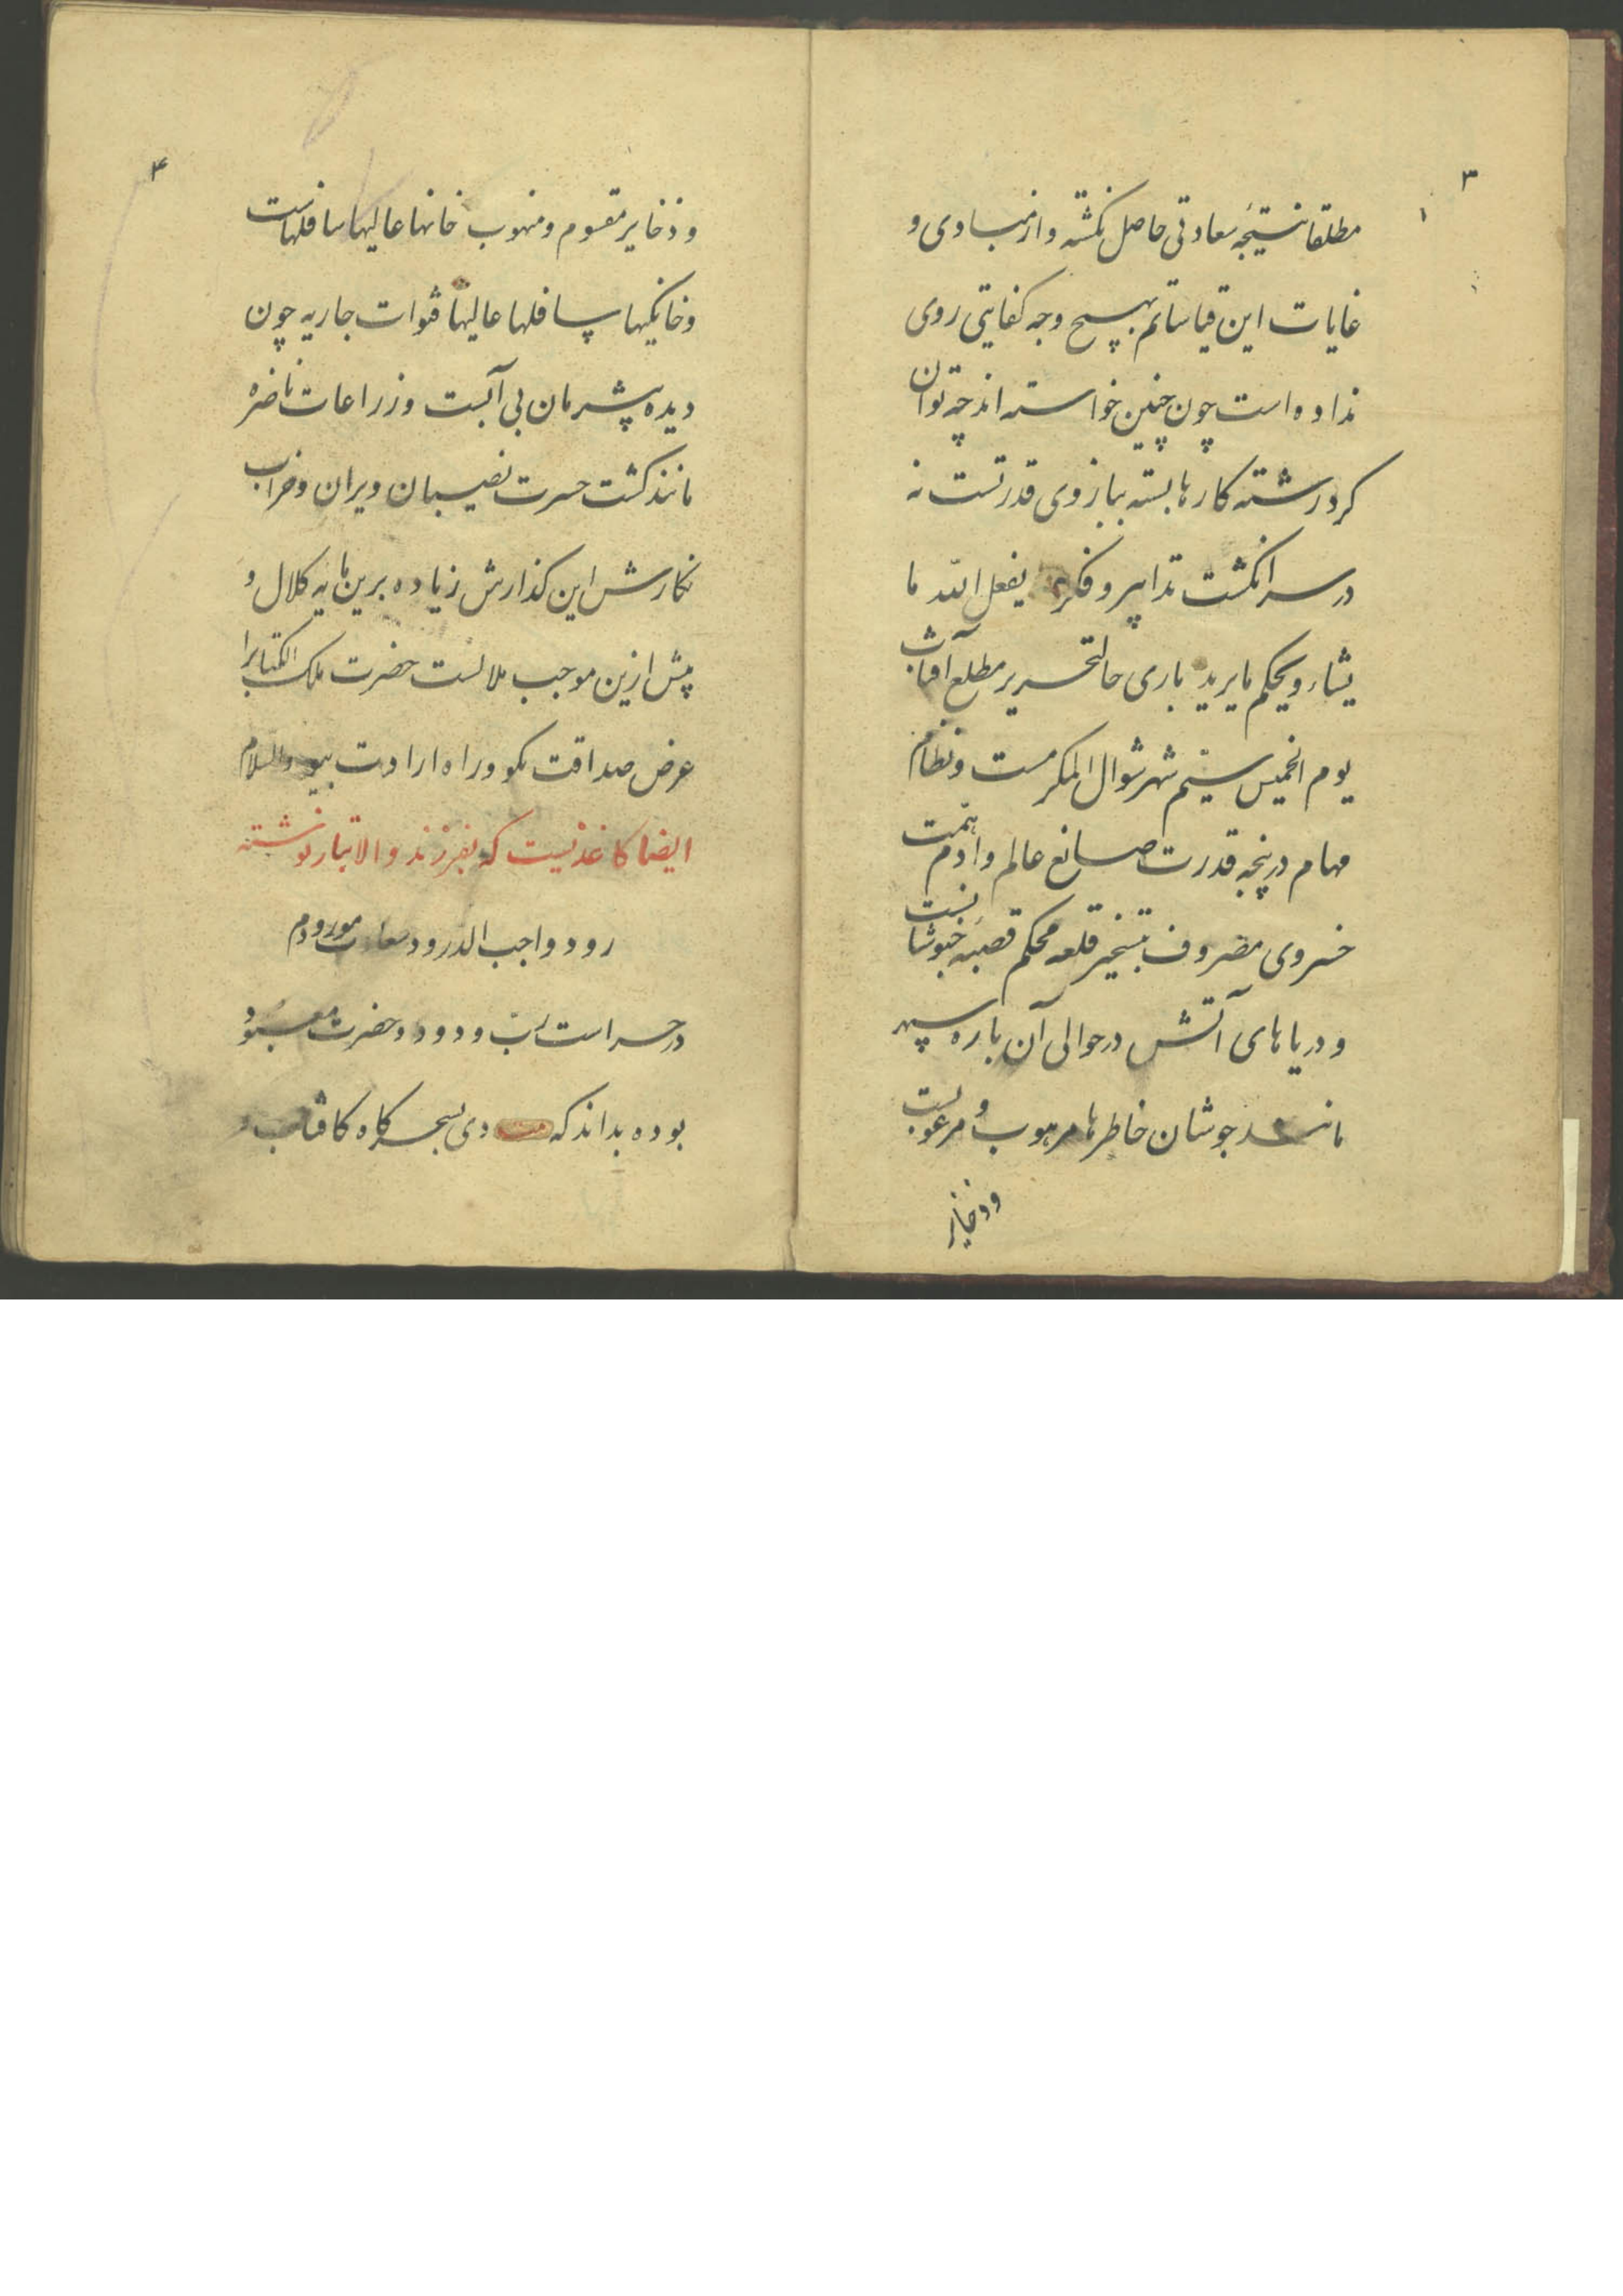 ۳
۱
مطلقا نتیجه سعادتی حاصل نگشته و از مبادی و
غایات این قیاساتم بهیچ وجه کفایتی روی
نداده است چون چنین خواسته اند چه توان
کرد رشته کارها بسته ببازوی قدرتست نه
در سر انگشت تدابیر و فکر یفعل الله ما
یشاء و یحکم ما یرید باری حالتحریر مطلع آفتاب
یوم الخمیس سیم شهر شوال المکرمست و نظام
مهام در پنجه قدرت صانع عالم و آدم همت
خسروی مصروف بتسخیر قلعه محکم قصبه خبوشانست
و دریاهای آتش در حوالی آن باره سپهر
مانند جوشان خاطرها مرهوب و مرعوبست
و ذخایر
۴
و ذخایر مقسوم و منهوب خانها عالیها سافلهاست
و خانگیها سافلها عالیها قنوات جاریه چون
دیده بیشرمان بی آبست و زراعات ناضره
مانند کشت حسرت نصیبان ویران و خراب
نگارش این گذارش زیاده برین مایه کلال و
پیش ازین موجب ملالست حضرت ملک الکتابرا
عرض صداقت بگو و راه ارادت بپو والسلام
ایضا کاغذیست که بفرزند والاتبار نوشته
رود واجب الدرود سعادت مورودم
در حراست رب ودود و حضرت معبود
بوده بداند که دی بسحرگاه کافتاب